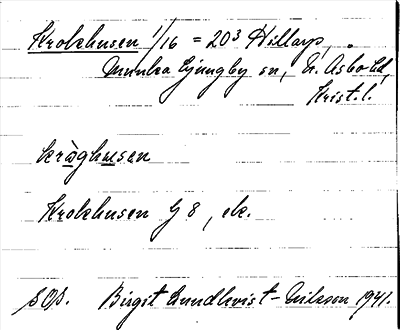 Krokhusen 1/16 = 20³ Hillarp,
Munka Ljungby sn, N. Åsbo hd,
Krist. l.
kråghusen
Krokhusen G 8, ek.
SOS. Birgit Lundkvist-Nilsson 1941.